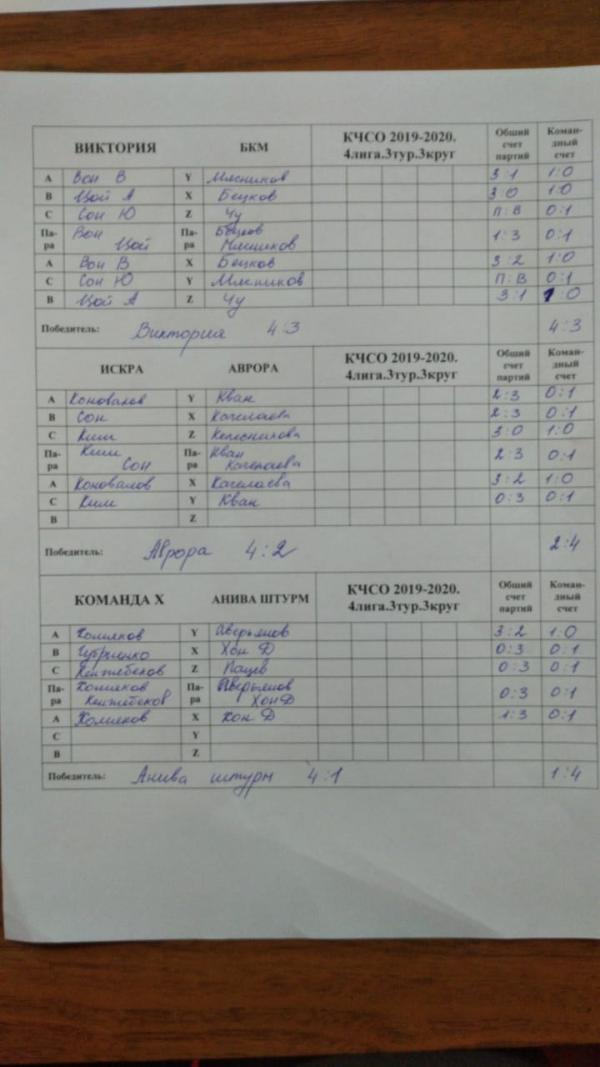 ВИКТОРИЯ БКМ КЧСО 2019-2020. 4лига.3тур.3круг Общий счет партий Коман-дный счет
А Вон В Y Мясников 3:1 1:0
В Цой А X Бецков 3:0 1:0
С Сон Ю Z Чу П:В 0:1
Па-ра Вон Цой Па-ра Бецков Мясников 1:3 0:1
А Вон В X Бецков 3:2 1:0
С Сон Ю Y Мясников П:В 0:1
В Цой А Z Чу 3:1 1:0
Победитель: Виктория 4:3 4:3
ИСКРА АВРОРА КЧСО 2019-2020. 4лига.3тур.3круг Общий счет партий Коман-дный счет
А Коновалов Y Кван 2:3 0:1
В Сон X Кагелаева 2:3 0:1
С Ким Z 3:0 1:0
Па-ра Ким Сон Па-ра Кван Кагелаева 2:3 0:1
А Коновалов X Кагелаева 3:2 1:0
С Ким Y Кван 0:3 0:1
В Z
Победитель: Аврора 4:2 2:4
КОМАНДА Х АНИВА ШТУРМ КЧСО 2019-2020. 4лига.3тур.3круг Общий счет партий Коман-дный счет
А Холияков Y Аверьянов 3:2 1:0
В X Хон Д 0:3 0:1
С Кенжебеков Z Пацев 0:3 0:1
Па-ра Холияков Кенжебеков Па-ра Аверьянов Хон Д 0:3 0:1
А Холияков X Хон Д 1:3 0:1
С Y
В Z
Победитель: Анива штурм 4:1 1:4